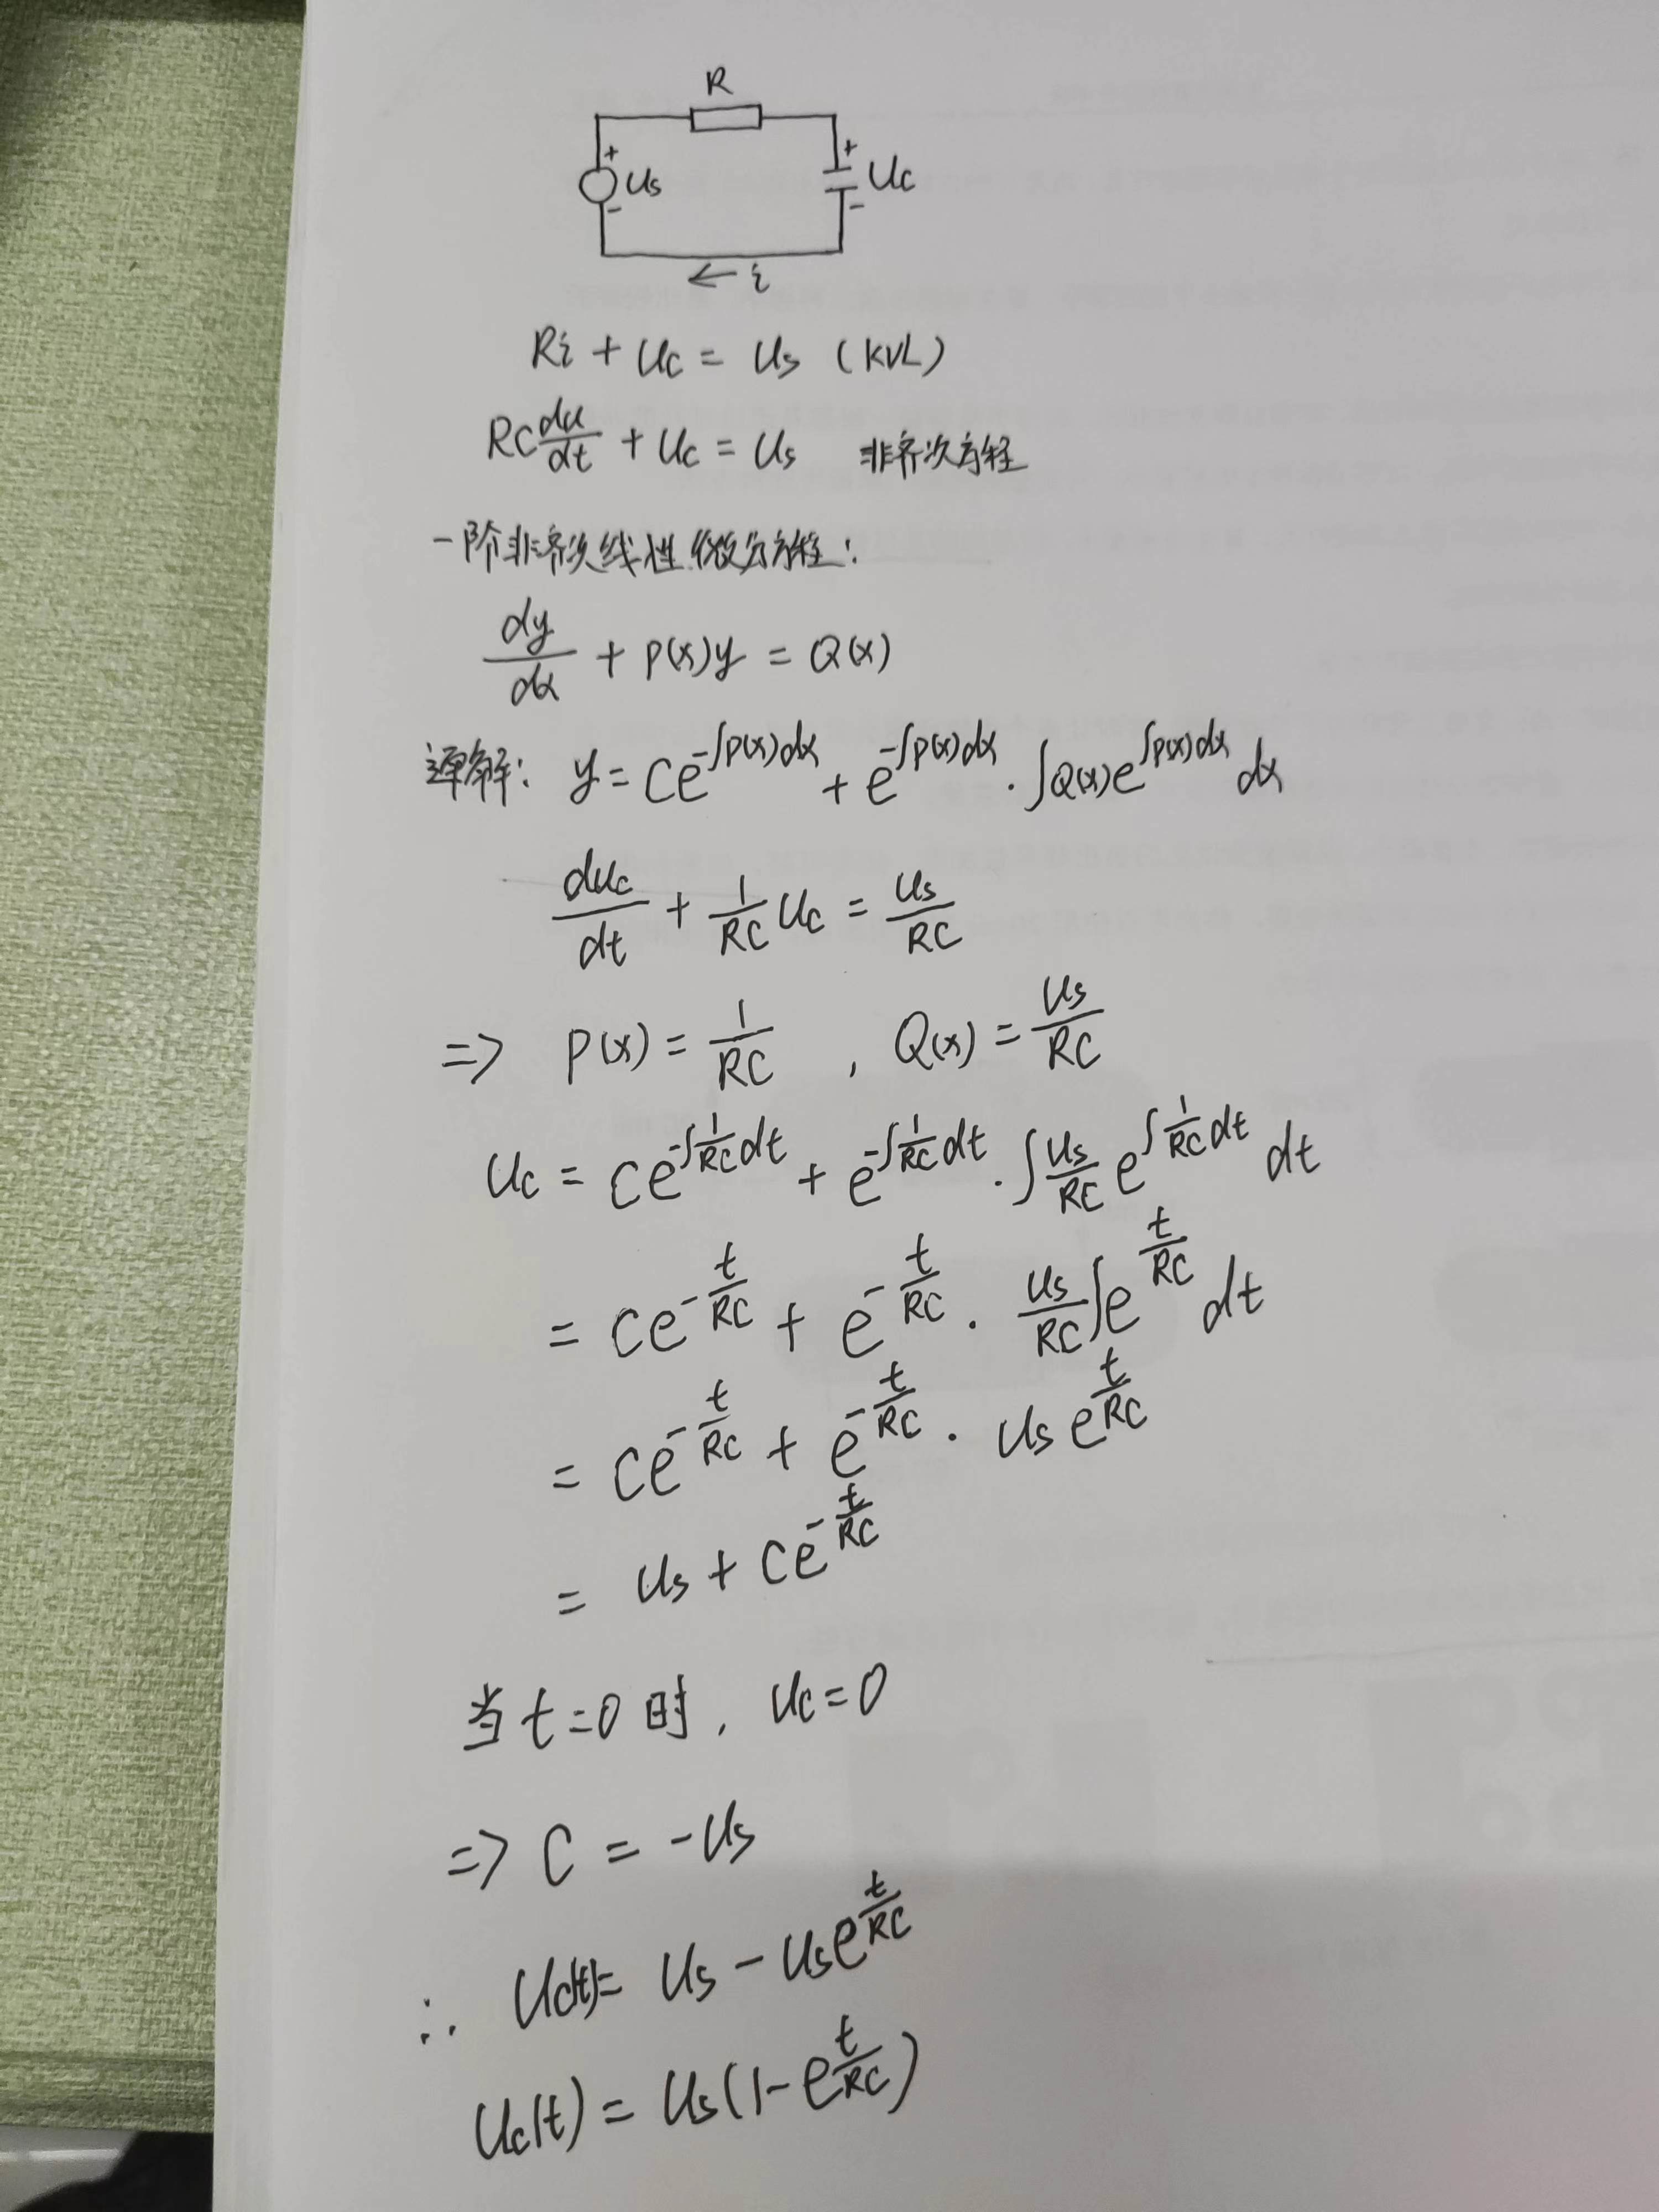 R
+ Us -
+ Uc -
← i
Ri + Uc = Us (KVL)
RC du/dt + Uc = Us 非齐次方程
一阶非齐次线性微分方程:
dy/dx + P(x)y = Q(x)
通解: y = Ce^(-∫P(x)dx) + e^(-∫P(x)dx) · ∫Q(x)e^(∫P(x)dx) dx
duc/dt + 1/RC Uc = Us/RC
=> P(x) = 1/RC , Q(x) = Us/RC
Uc = Ce^(-∫1/RC dt) + e^(-∫1/RC dt) · ∫Us/RC e^(∫1/RC dt) dt
= Ce^(-t/RC) + e^(-t/RC) · Us/RC ∫e^(t/RC) dt
= Ce^(-t/RC) + e^(-t/RC) · Us e^(t/RC)
= Us + Ce^(-t/RC)
当 t=0 时, Uc=0
=> C = -Us
∴ Uc(t)= Us - Us e^(t/RC)
Uc(t) = Us(1-e^(t/RC))